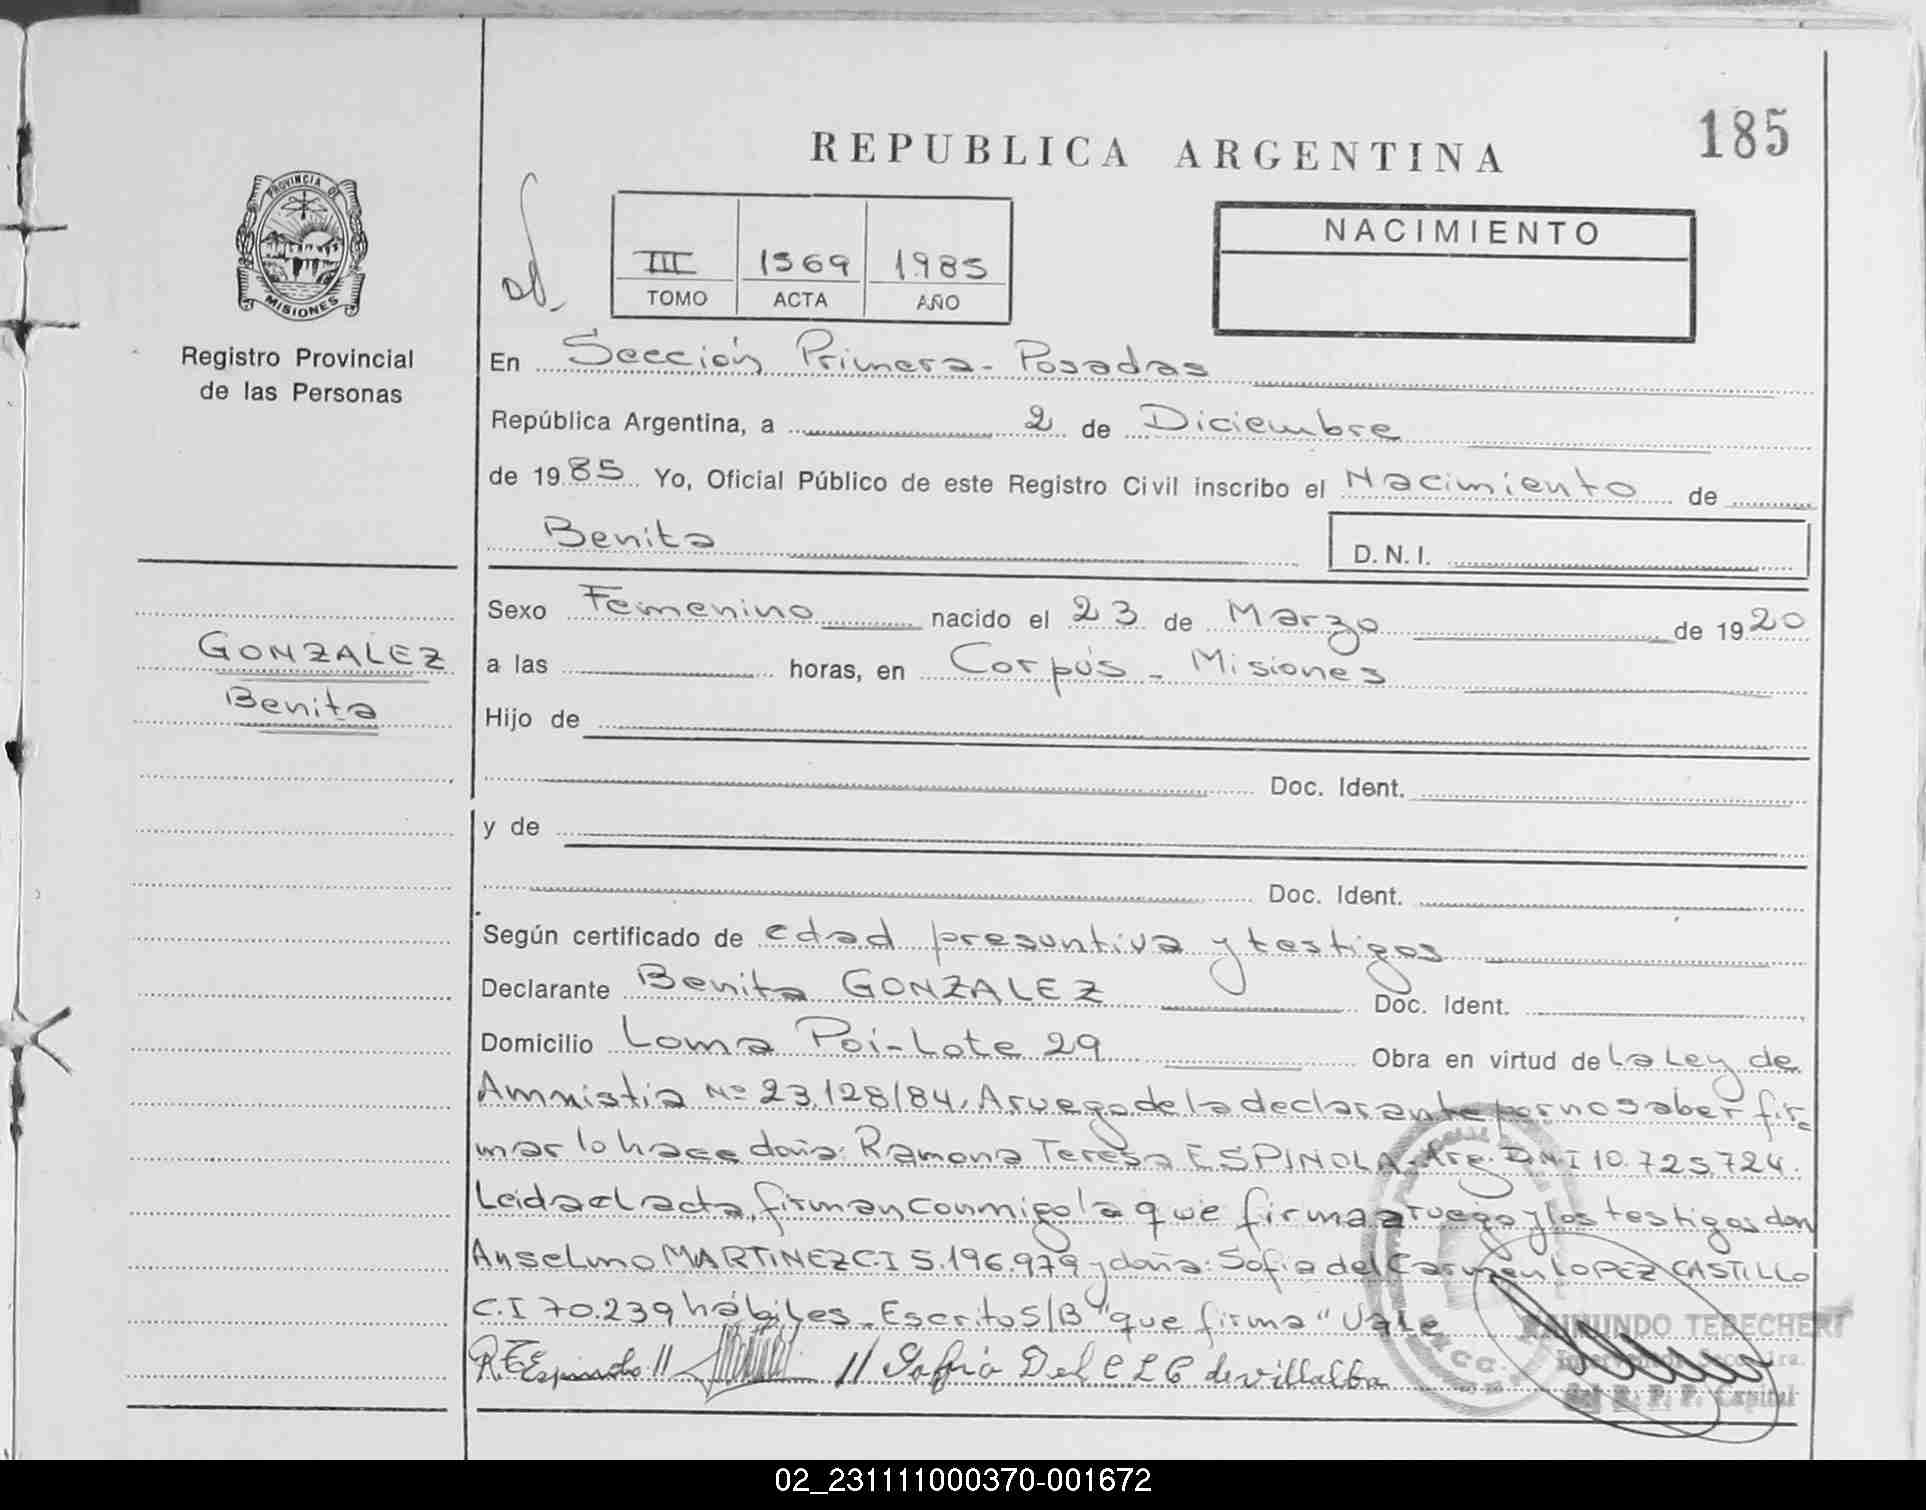 185
REPUBLICA ARGENTINA
PROVINCIA DE
MISIONES
Registro Provincial
de las Personas
III 1569 1985
TOMO ACTA AÑO
NACIMIENTO
En Sección Primera - Posadas
República Argentina, a 2 de Diciembre
de 1985 Yo, Oficial Público de este Registro Civil inscribo el Nacimiento de
Benita D.N.I.
GONZALEZ
Benita
Sexo Femenino nacido el 23 de Marzo de 1920
a las horas, en Corpús - Misiones
Hijo de
Doc. Ident.
y de
Doc. Ident.
Según certificado de edad presuntiva y testigos
Declarante Benita GONZALEZ Doc. Ident.
Domicilio Loma Poi - Lote 29 Obra en virtud de la Ley de
Amnistia Nº 23.128/84. A ruego de la declarante por no saber fir
mar lo hace doña: Ramona Teresa ESPINOLA - Arg. DNI 10.725.724.
Leida el acta, firman conmigo la que firma a ruego y los testigos don
Anselmo MARTINEZ C.I 5.196.979 y doña: Sofia del Carmen LOPEZ CASTILLO
C.I 70.239 hábiles. Escrito S/B "que firma" Vale
// // Sofia Del C L C de Villalba
TEBECHERI
del R. P. P. Capital
02_231111000370-001672